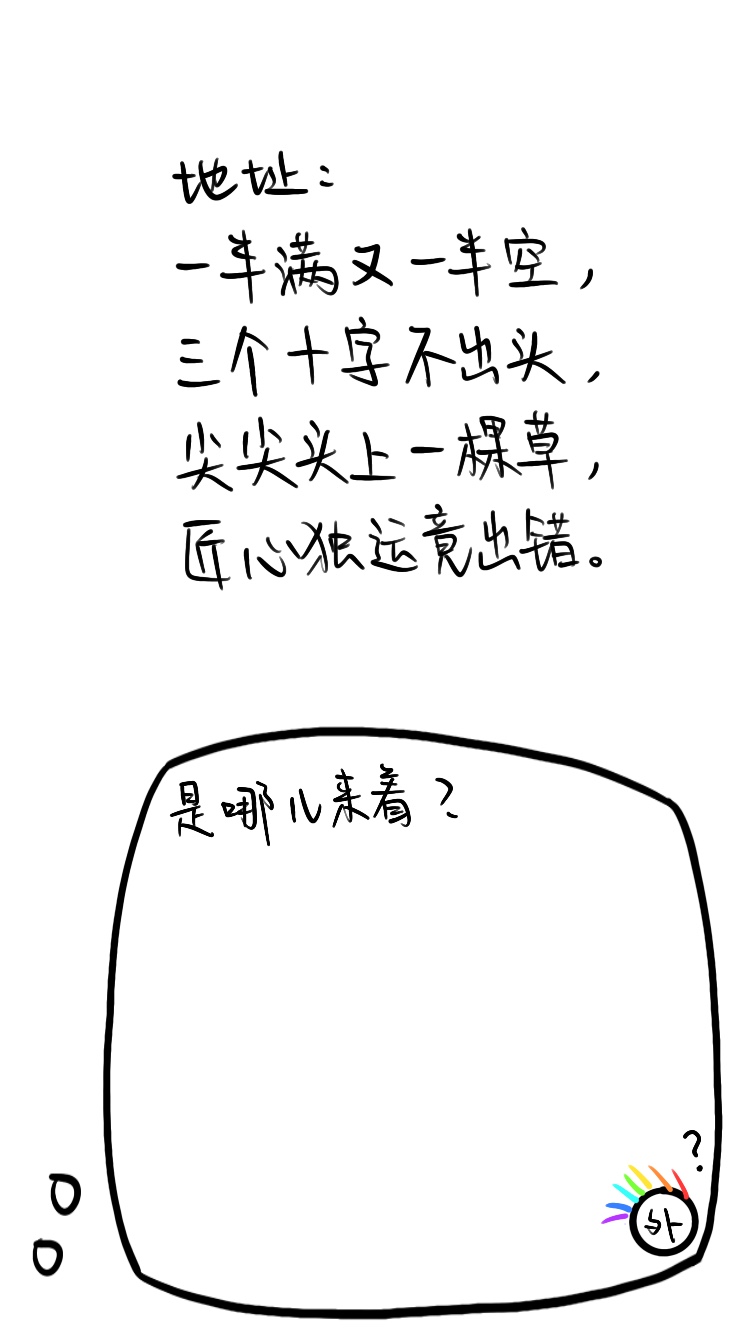 地址：
一半满又一半空，
三个十字不出头，
尖尖头上一棵草，
匠心独运竟出错。
是哪儿来着？
？
外